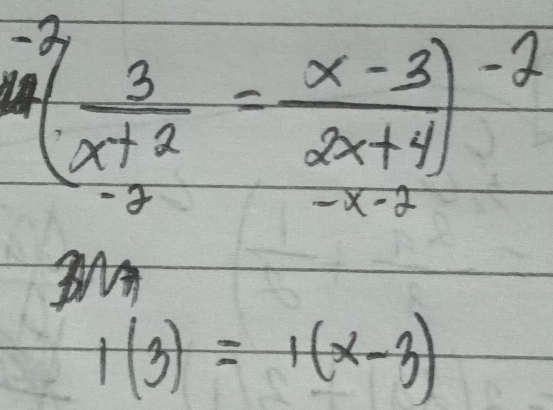 -2 ( 3/(x+2) = (x-3)/(2x+4) ) -2
-2 -x-2
1(3) = 1(x-3)